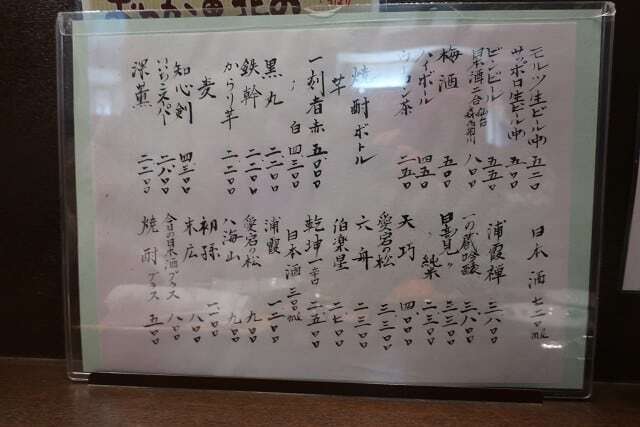 モルツ生ビール(中) 五二〇
サッポロ生ビール(中) 五〇〇
ビンビール 五五〇
日本酒二合 仙台 八〇〇
梅酒 五〇〇
ハイボール 四五〇
ウーロン茶 二五〇
焼酎ボトル
芋
一刻者 赤 五〇〇〇
〃 白 四三〇〇
黒丸 二二〇〇
鉄幹 二二〇〇
からり芋 二二〇〇
麦
知心剣 四三〇〇
いいちこスーパー 二八〇〇
深薫 二二〇〇
日本酒 七二〇ml
浦霞禅 三八〇〇
一の蔵吟醸 三八〇〇
日高見 三三〇〇
〃 純米 二三〇〇
天巧 四〇〇〇
愛宕の松 三三〇〇
六舟 二三〇〇
伯楽星 二七〇〇
乾坤一 辛口 二五〇〇
日本酒 三〇〇ml
浦霞 一二〇〇
愛宕の松 九〇〇
八海山 九〇〇
初孫 一一〇〇
末広 八〇〇
今日の日本酒グラス 八〇〇
焼酎グラス 五〇〇